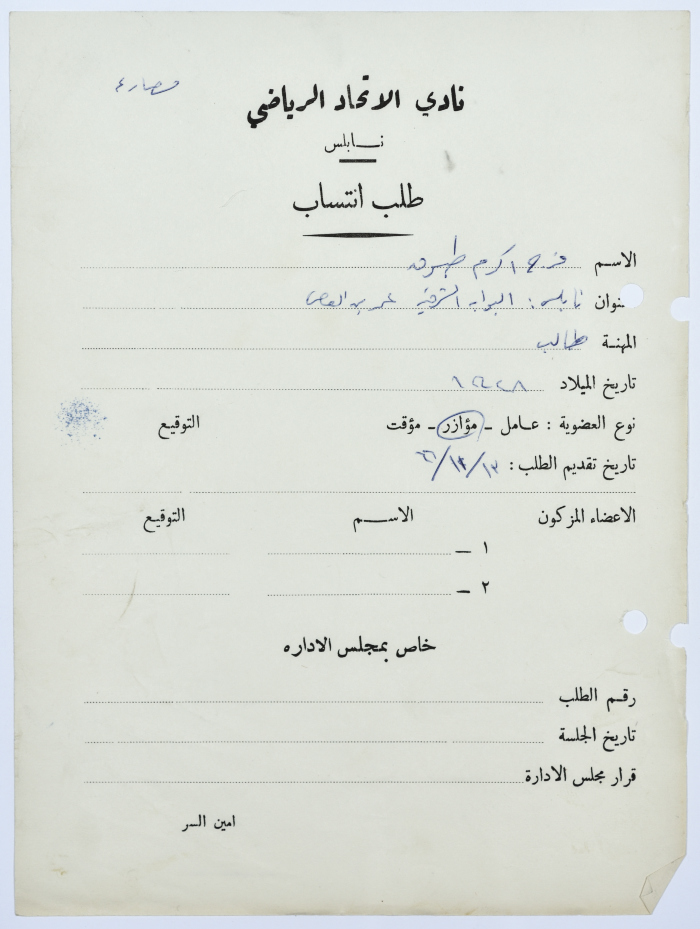 نادي الاتحاد الرياضي
نابلس
طلب انتساب
الاسم فرح اكرم طبوق
نوان نابلس: البوابه الشرقية عمر بن العاص
المهنة طالب
تاريخ الميلاد
نوع العضوية : عامل - مؤازر - مؤقت التوقيع
تاريخ تقديم الطلب : ١٣/١٢/
الاعضاء المزكون الاسم التوقيع
١ -
٢ -
خاص بمجلس الاداره
رقم الطلب
تاريخ الجلسة
قرار مجلس الادارة
امين السر